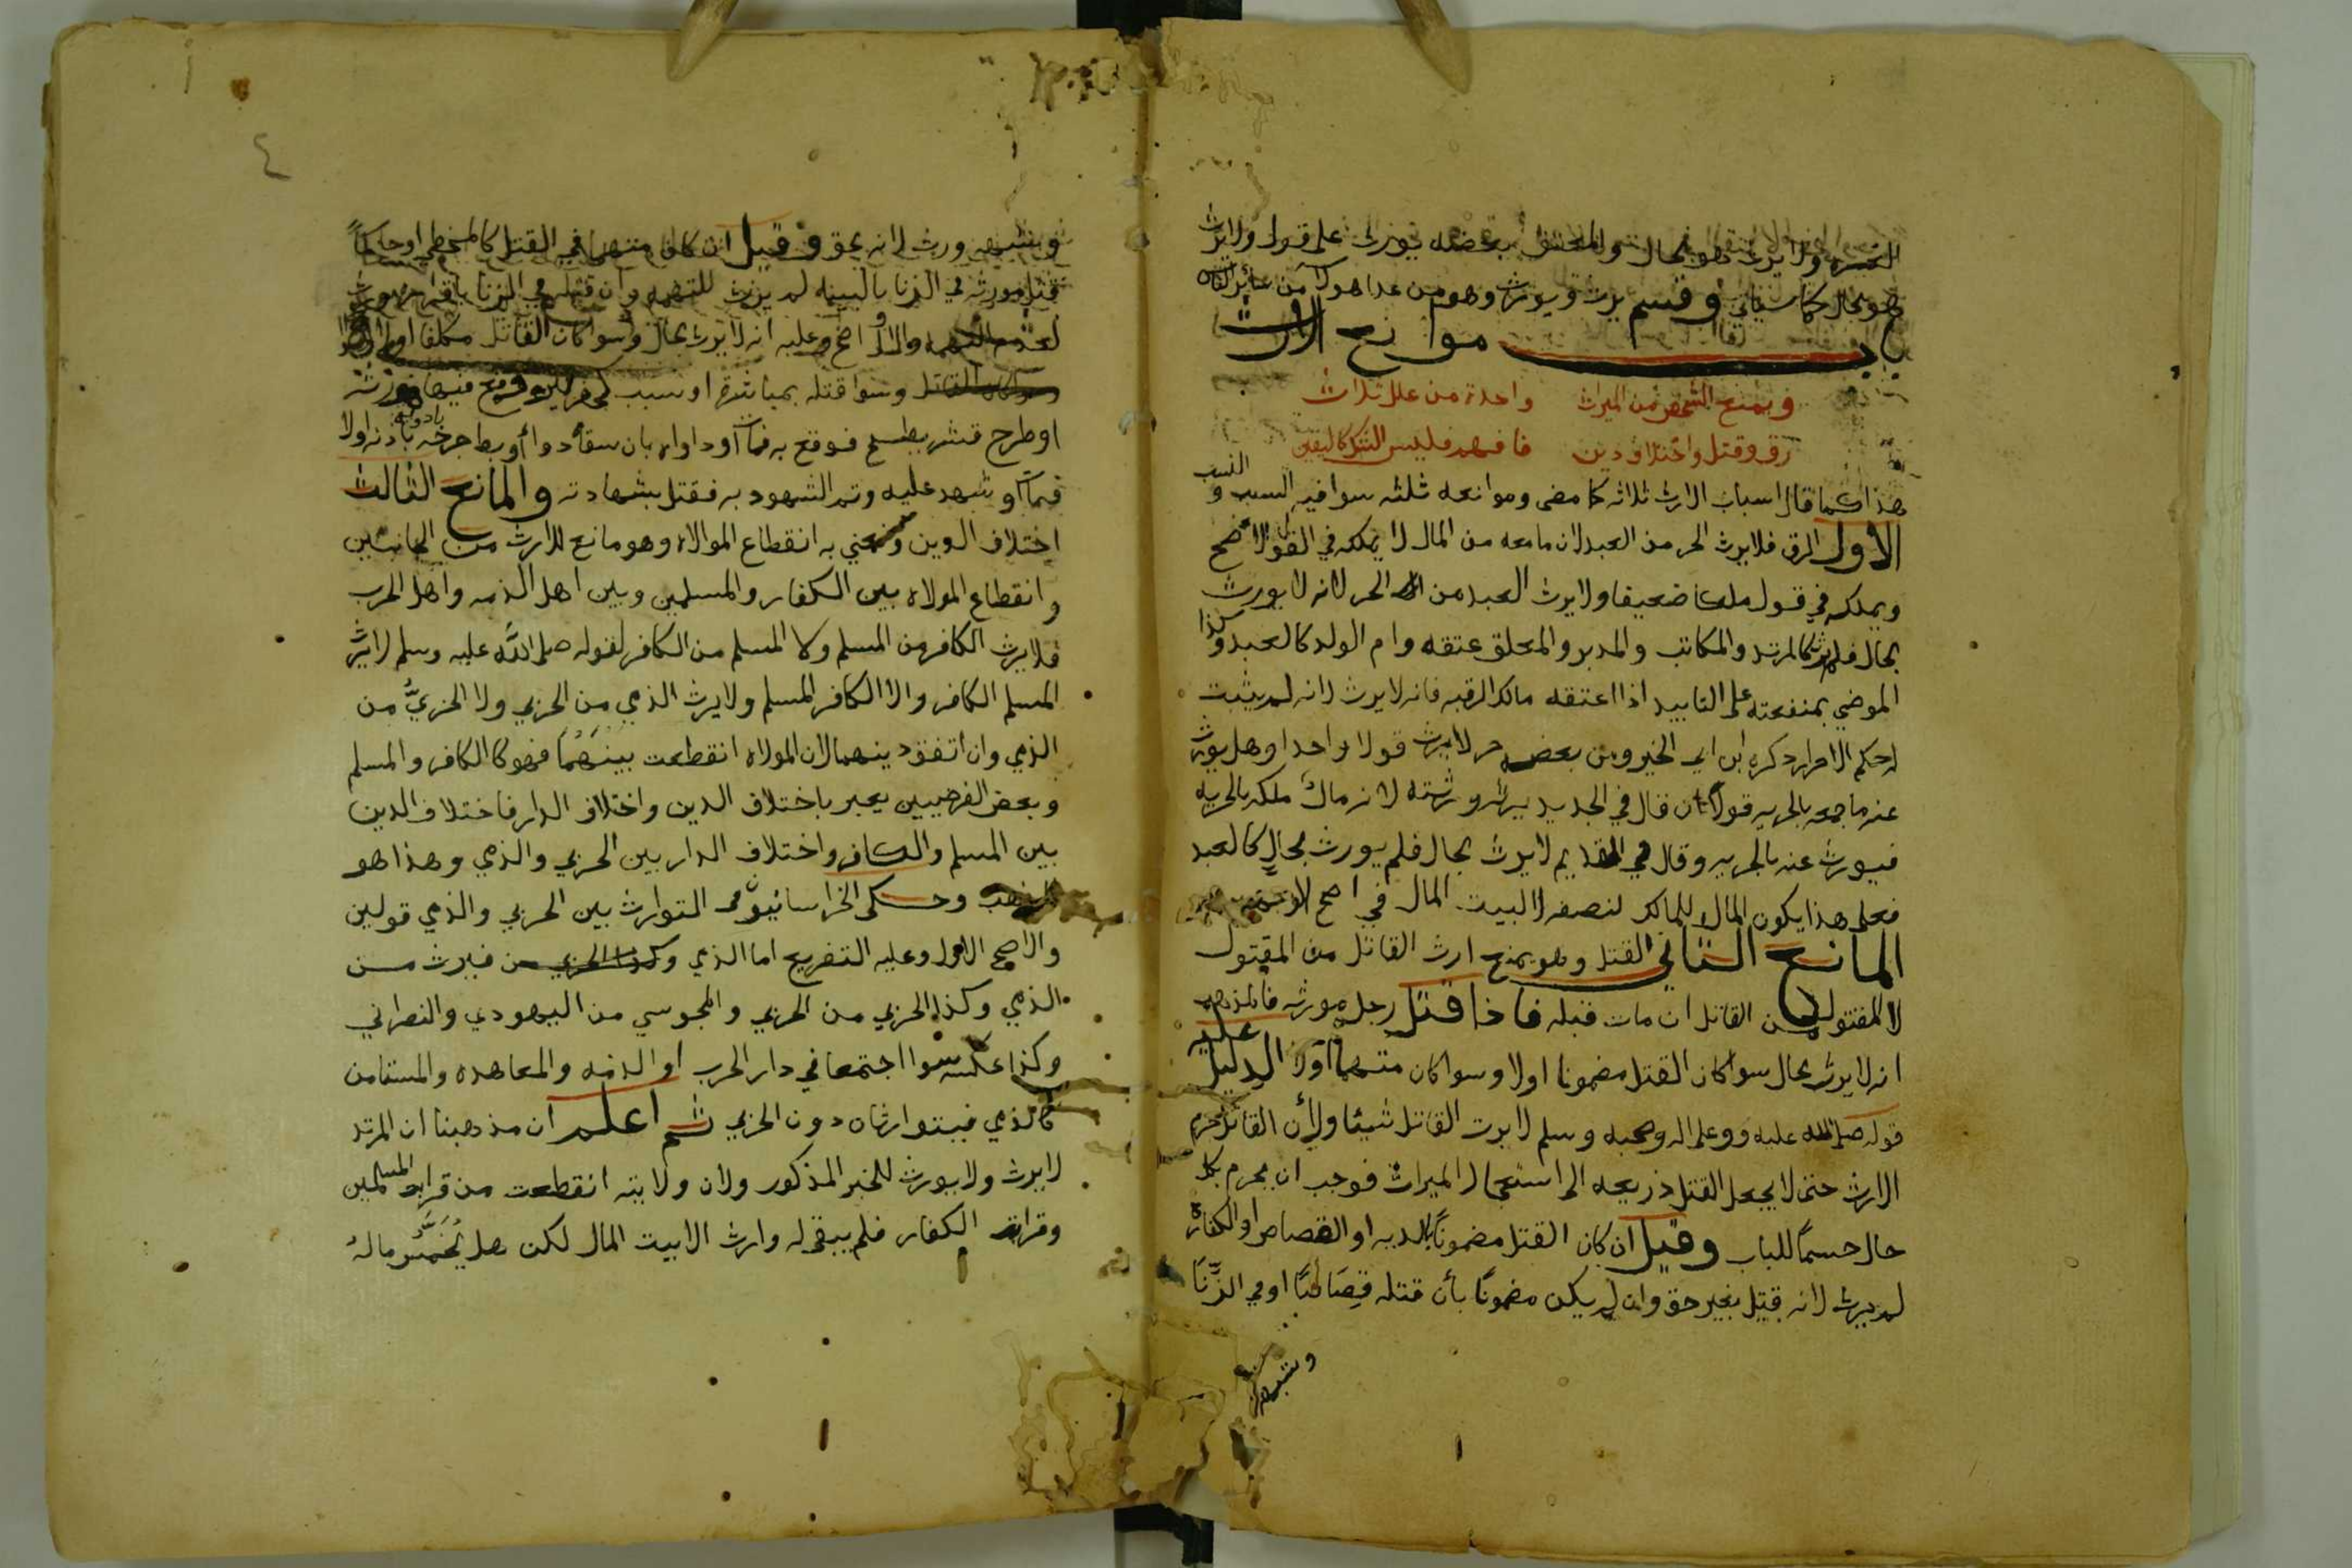 ولا يرث هو بحال والمعتق بعضه يورث على قول ولا يرث
هو بحال كما سيأتي وقسم يرث ويورث وهو من عدا هولا من سائر
باب موانع الارث
ويمنع الشخص من الميراث واحدة من علل ثلاث
رق وقتل واختلاف دين فافهم فليس الشك كاليقين
هذا كما قال اسباب الارث ثلاثه كما مضى وموانعه ثلثه سوا فيه السبب و النسب
الاول الرق فلا يرث الحر من العبد لان ما معه من المال لا يملكه في القول الاصح
ويملكه في قول ملكا ضعيفا ولا يرث العبد من الحر لانه لا يورث
بحال فلم يرث كالمرتد والمكاتب والمدبر والمعلق عتقه وام الولد كالعبد وكذا
الموصي بمنفعته على التابيد اذا اعتقه مالك الرقبه فانه لا يرث لانه لم يثبت
له حكم الاحرار ذكره ابن ابي الخير ومن بعضه حر لا يرث قولا واحدا وهل يورث
عنه ما جمعه بالحريه قولان قال في الجديد يرثه ورثته لانه مال ملكه بالحريه
فيورث عنه بالحريه وقال في القديم لا يرث بحال فلم يورث بحال كالعبد
فعلى هذا يكون المال للمالك لنصفه لا لبيت المال في اصح
المانع الثاني القتل وهو يمنع ارث القاتل من المقتول
لا المقتول من القاتل ان مات قبله فاذا قتل رجل مورثه فالمذهب
انه لا يرث بحال سوا كان القتل مضمونا اولا وسوا كان متهما اولا الدليل عليه
قوله صلى الله عليه وعلى اله وصحبه وسلم لا يرث القاتل شيئا ولأن القاتل حرم
الارث حتى لا يجعل القتل ذريعه الى استعجال الميراث فوجب ان يحرم بكل
حال حسماً للباب وقيل ان كان القتل مضموناً بالديه او القصاص او الكفارة
لم يرث لانه قتل بغير حق وان لم يكن مضموناً بأن قتله قصاصًا او في الزنا
وشبهه
وشبهه ورث لانه بحق وقيل ان كان متهما في القتل كالمخطي او حاكماً
قتل مورثه في الزنا بالبينه لم يرث للتهمه وان قتله في الزنا باقراره ورث
لعدم التهمه والاول اصح وعليه انه لا يرث بحال وسوا كان القاتل مكلفا اولا
وسوا قتله بمباشرة او سبب كحفر بير فوقع فيها مورثه
او طرح قشر بطيخ فوقع به فمات او داواه بان سقاه دوا أو بط جرحه باذنه اولا
فمات او شهد عليه وتم الشهود به فقتل بشهادته والمانع الثالث
اختلاف الدين ونعني به انقطاع الموالاه وهو مانع للارث من الجانبين
وانقطاع المولاه بين الكفار والمسلمين وبين اهل الذمه واهل الحرب
فلا يرث الكافر من المسلم ولا المسلم من الكافر لقوله صلى الله عليه وسلم لا يرث
المسلم الكافر ولا الكافر المسلم ولا يرث الذمي من الحربي ولا الحربيُّ من
الذمي وان اتفق دينهما لان المولاه انقطعت بينهما فهو كالكافر والمسلم
وبعض الفرضيين يعبر باختلاف الدين واختلاف الدار فاختلاف الدين
بين المسلم والكافر واختلاف الدار بين الحربي والذمي وهذا هو
المذهب وحكى الخراسانيون في التوارث بين الحربي والذمي قولين
والاصح الاول وعليه التفريع اما الذمي فيرث من
الذمي وكذا الحربي من الحربي والمجوسي من اليهودي والنصراني
وكذا عكسه سوا اجتمعا في دار الحرب او الذمه والمعاهده والمستامن
كالذمي فيتوارثان دون الحربي ثم اعلم ان مذهبنا ان المرتد
لا يرث ولا يورث للخبر المذكور ولان ولايته انقطعت من قرابه المسلمين
وقرابه الكفار فلم يبق له وارث الا بيت المال لكن هل يُخَمَّس ماله
٤